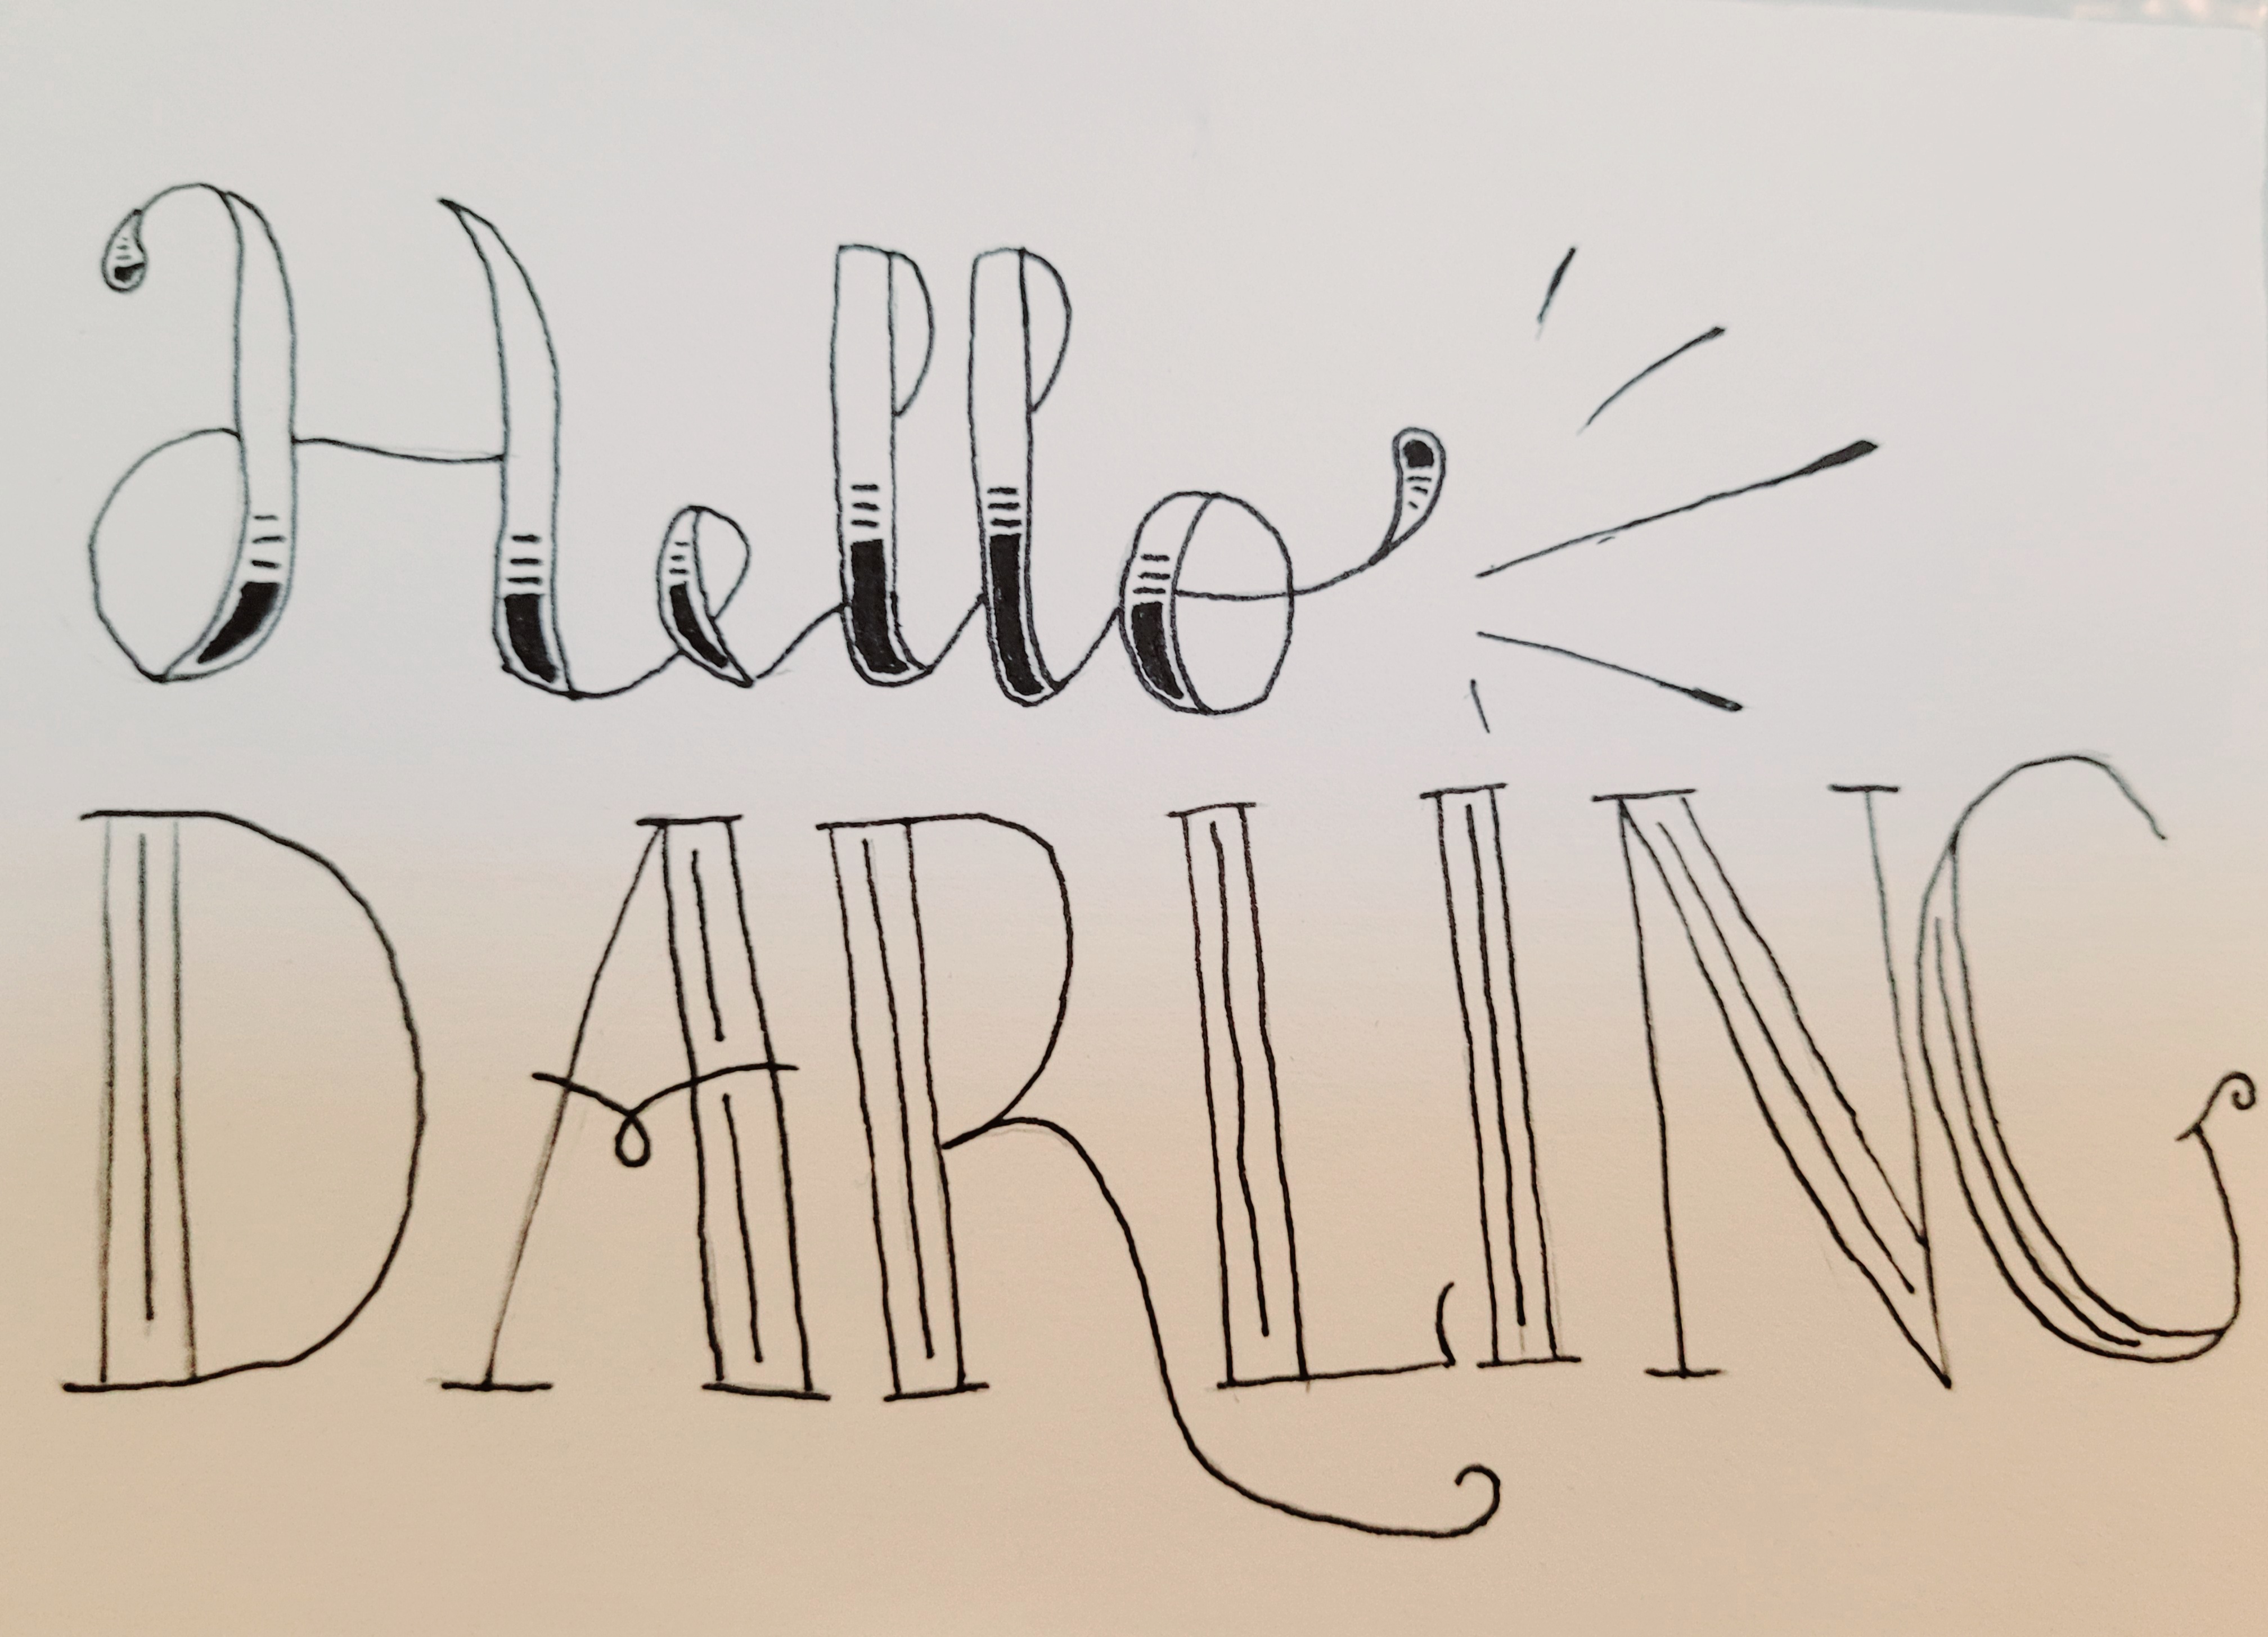 Hello
DARLING